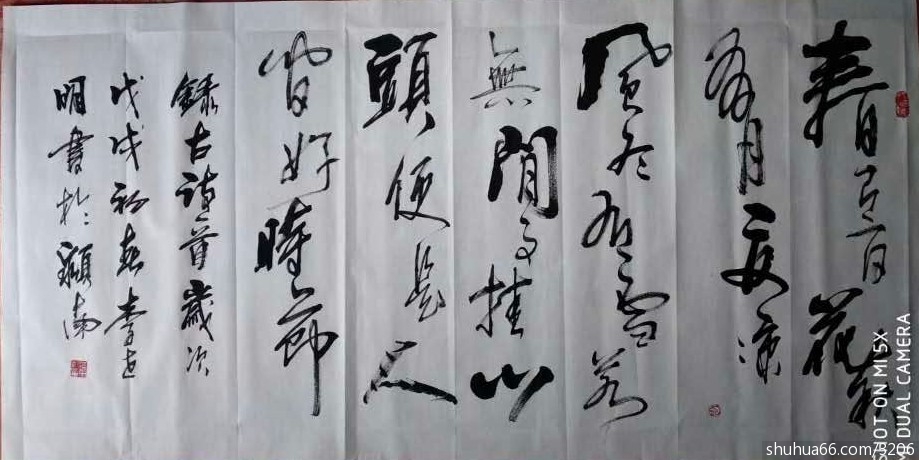 春有百花秋
有月夏涼
風冬有雪若
無閒事挂心
頭便是人
間好時節
錄古詩一首歲次
戊戌初春李
明書於贛南
SHOT ON MI 5X
MI DUAL CAMERA
shuhua66.com/8206